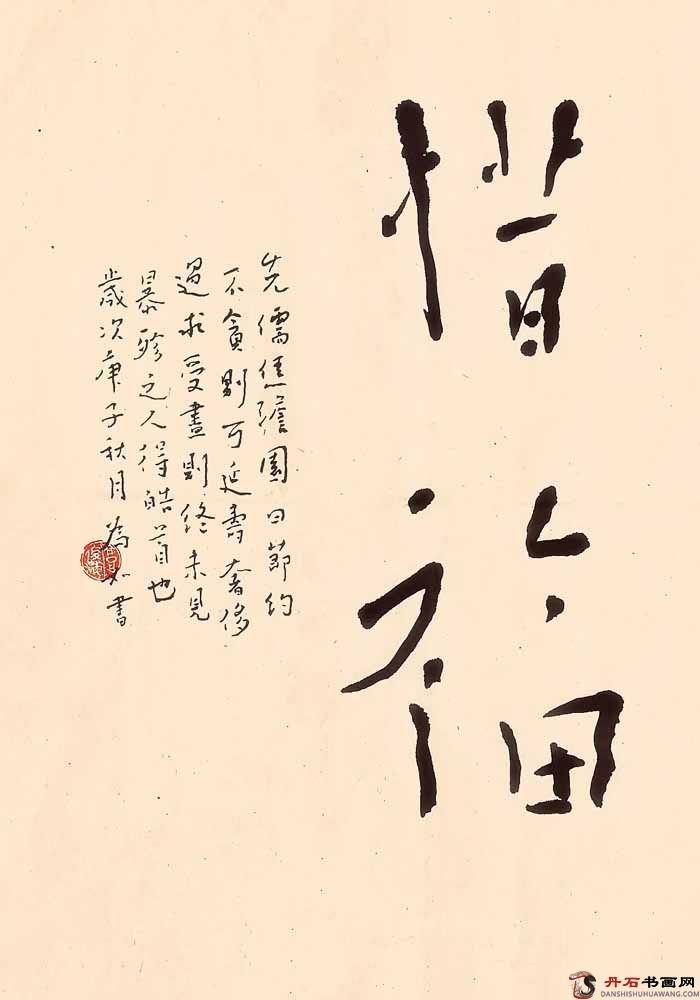 惜福
先儒焦澹園曰節約
不貪則可延壽奢侈
過求受盡則終未見
暴殄之人得皓首也
歲次庚子秋月為如書
丹石书画网
DANSHISHUHUAWANG.COM